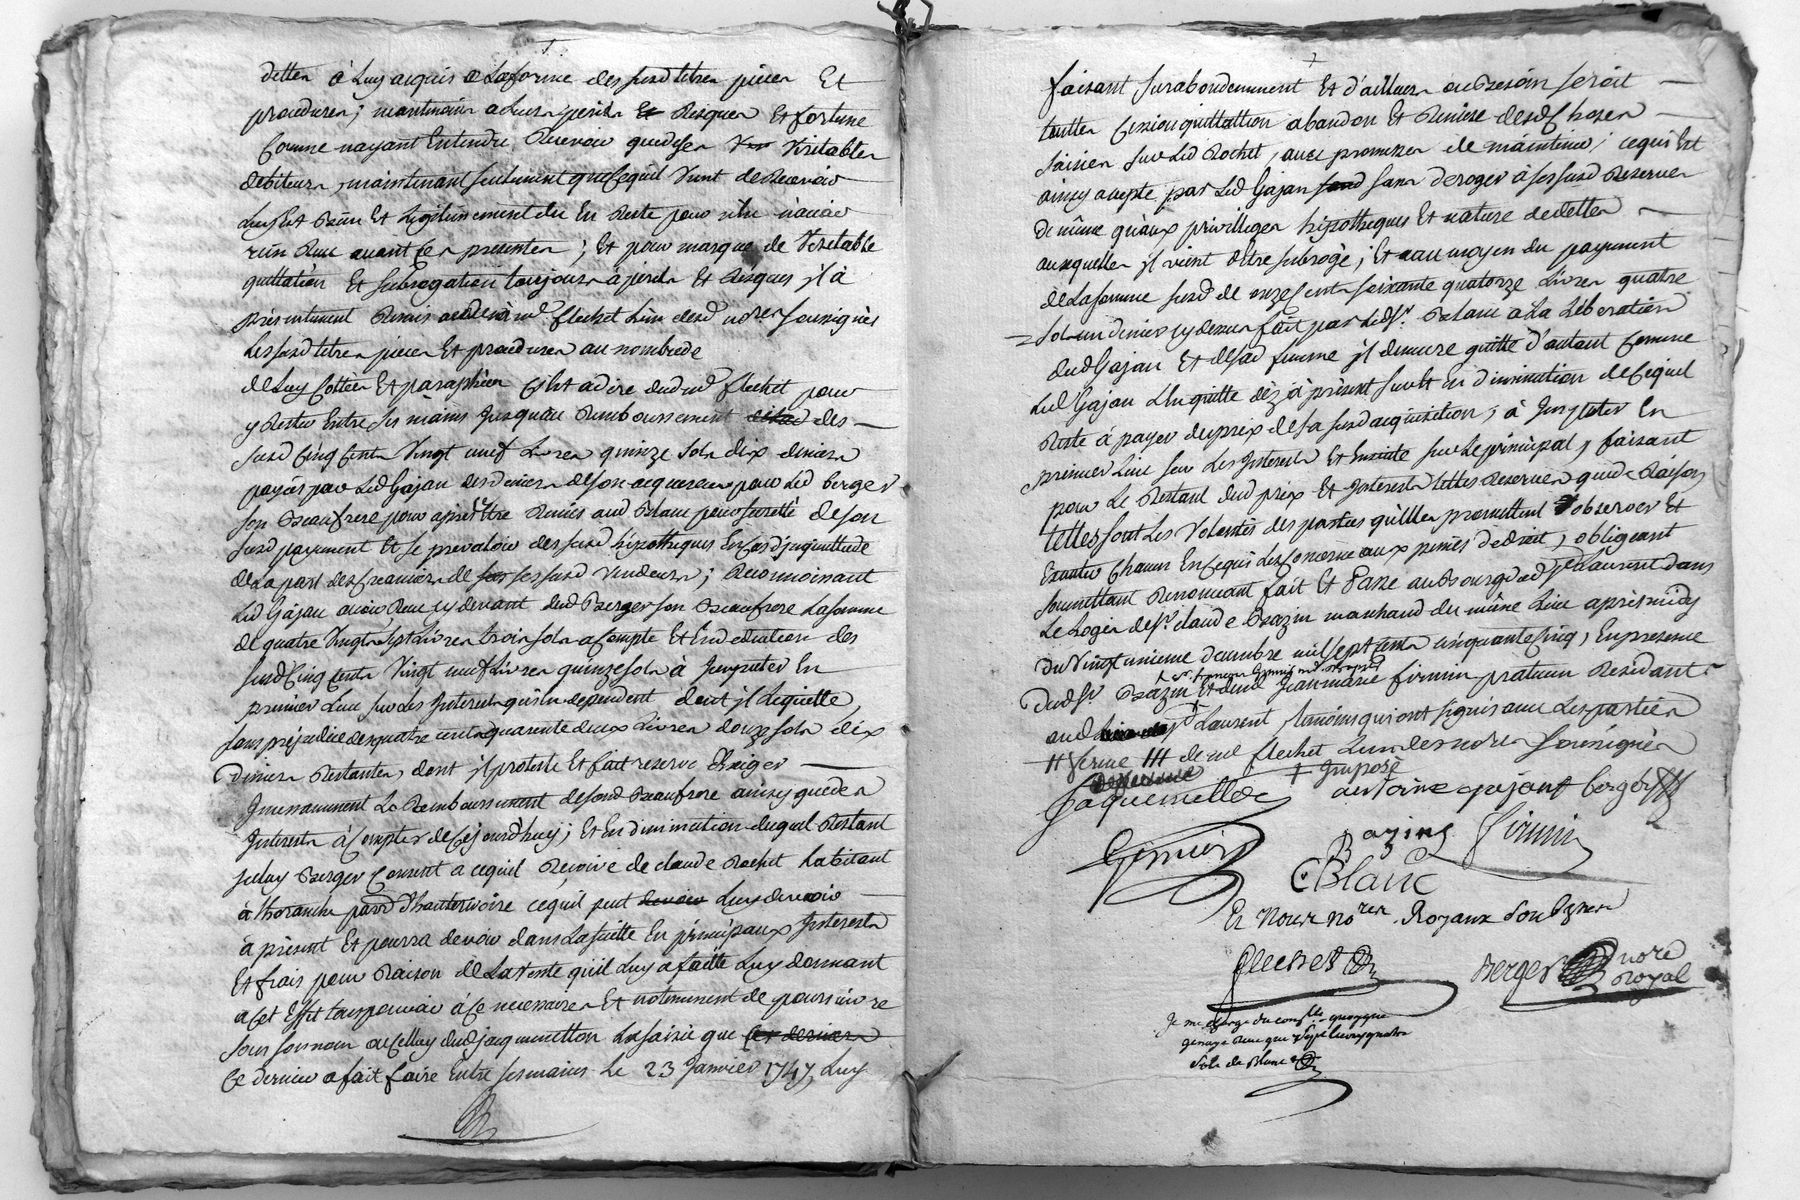 dettes à luy acquis a la forme des susd titres pieces Et
procedures; maintenir a leurs perils Et Risques Et fortune
Comme nayant Entendu Recevoir que des Veritables
debiteurs, maintenant seulement que ce quil vient de Recevoir
luy Est Bien Et legitimement du En Reste pour n'en n'avoir
rien Reçu avant Ces presentes; Et pour marque de Veritable
quittation Et subrogation toujours à perils Et Risques jl à
presentement Remis aud me flechet l'un desd nores soussignés
les susd titres pieces Et procedures au nombre de
de luy Cottées Et paraphées C'Est a dire dud me flechet pour
y Rester Entre ses mains jusquau Remboursement des
susd Cinq Cents Vingt neuf livres quinze sols dix deniers
payés par led Gajan des deniers de son acquereur pour led berger
son Beaufrere pour apres Etre Remis aud Blanc pour seureté de son
susd payement Et se prevaloir des susd hipotheques En Cas d'jnquiettude
de la part des Creanciers de ses susd Vendeurs; Reconnoissant
led Gajan avoir Reçu cy devant dud Berger son Beaufrere la somme
de quatre Vingt sept livres trois sols a Compte Et En deduction des
susd Cinq Cents Vingt neuf livres quinze sols à jmputer En
premier lieu sur les jnterests qui En dependent dont jl le quitte,
sans préjudice des quatre cents quarente deux livres douze sols dix
deniers Restantes, dont jl proteste Et fait reserve d'Exiger
jncessamment le Remboursement de sond Beaufrere ainsy que des
jnterests à Compter de Ce jourd'huy; Et En diminution duquel Restant
jceluy Berger Consent a ce quil Reçoive de claude Rochet habitant
à Thoranche parr d'hauterivoire ce quil peut luy devoir
à present Et pourra devoir dans la suitte En principaux jnterests
Et frais pour Raison de la Vente qu'il luy a faitte luy donnant
a Cet Effet tous pouvoir à Ce necessaires Et notemment de poursuivre
sous son nom ou Celluy dud jacquemetton la saisie que Ces deniers
Ce dernier a fait faire Entre ses mains le 23 Janvier 1747, luy
faisant surabondemment Et d'ailleurs au Besoin seroit
toutte Cession quittattion abandon Et Remise desd Choses
saisies sur led Rochet, avec promesses de maintenir; ce qui Est
ainsy accepté par led Gajan sans deroger à ses susd Reserves
De même qu'aux privilleges hipotheques Et nature de dettes
auxquelles jl vient d'Etre subrogé; Et au moyen du payement
de la somme susd de onze Cents soixante quatorze livres quatre
sols un denier cy dessus fait par led sr. Blanc a la liberation
dud Gajan Et desad femme jl demeure quitte d'autant Comme
led Gajan l'En quitte dèz à présent sur Et En diminution de Ce quil
Reste à payer du prix de sa susd acquisition; à jmputer En
premier lieu sur les jnterests Et Ensuite sur le principal, faisant
pour le Restant dud prix Et jnterests telles Reserves que de Raison
telles sont les Volontés des parties qu'Elles promettent observer Et
Executer Chacun En Ce qui les Concerne aux peines de droit, obligeant
soumettant Renonçant fait Et Passé au Bourg dud st laurent dans
le logis de sr. claude Bazin marchand du même lieu aprés midy
du Vingt unieme decembre mil sept cents cinquante Cinq, En presence
dud sr. Bazin Et de me Jean marie firmin praticien Residant
aud st Laurent, temoins qui ont signés avec les parties
de me flechet l'un des nores soussignés
jmposé
Jaquemetton antoine gajant berger
Grenier Bazin firmin
C Blanc
Et Nous nores Royaux soubsnes
flechet Berger nore
Royal
Je me charge du conlle quoyque